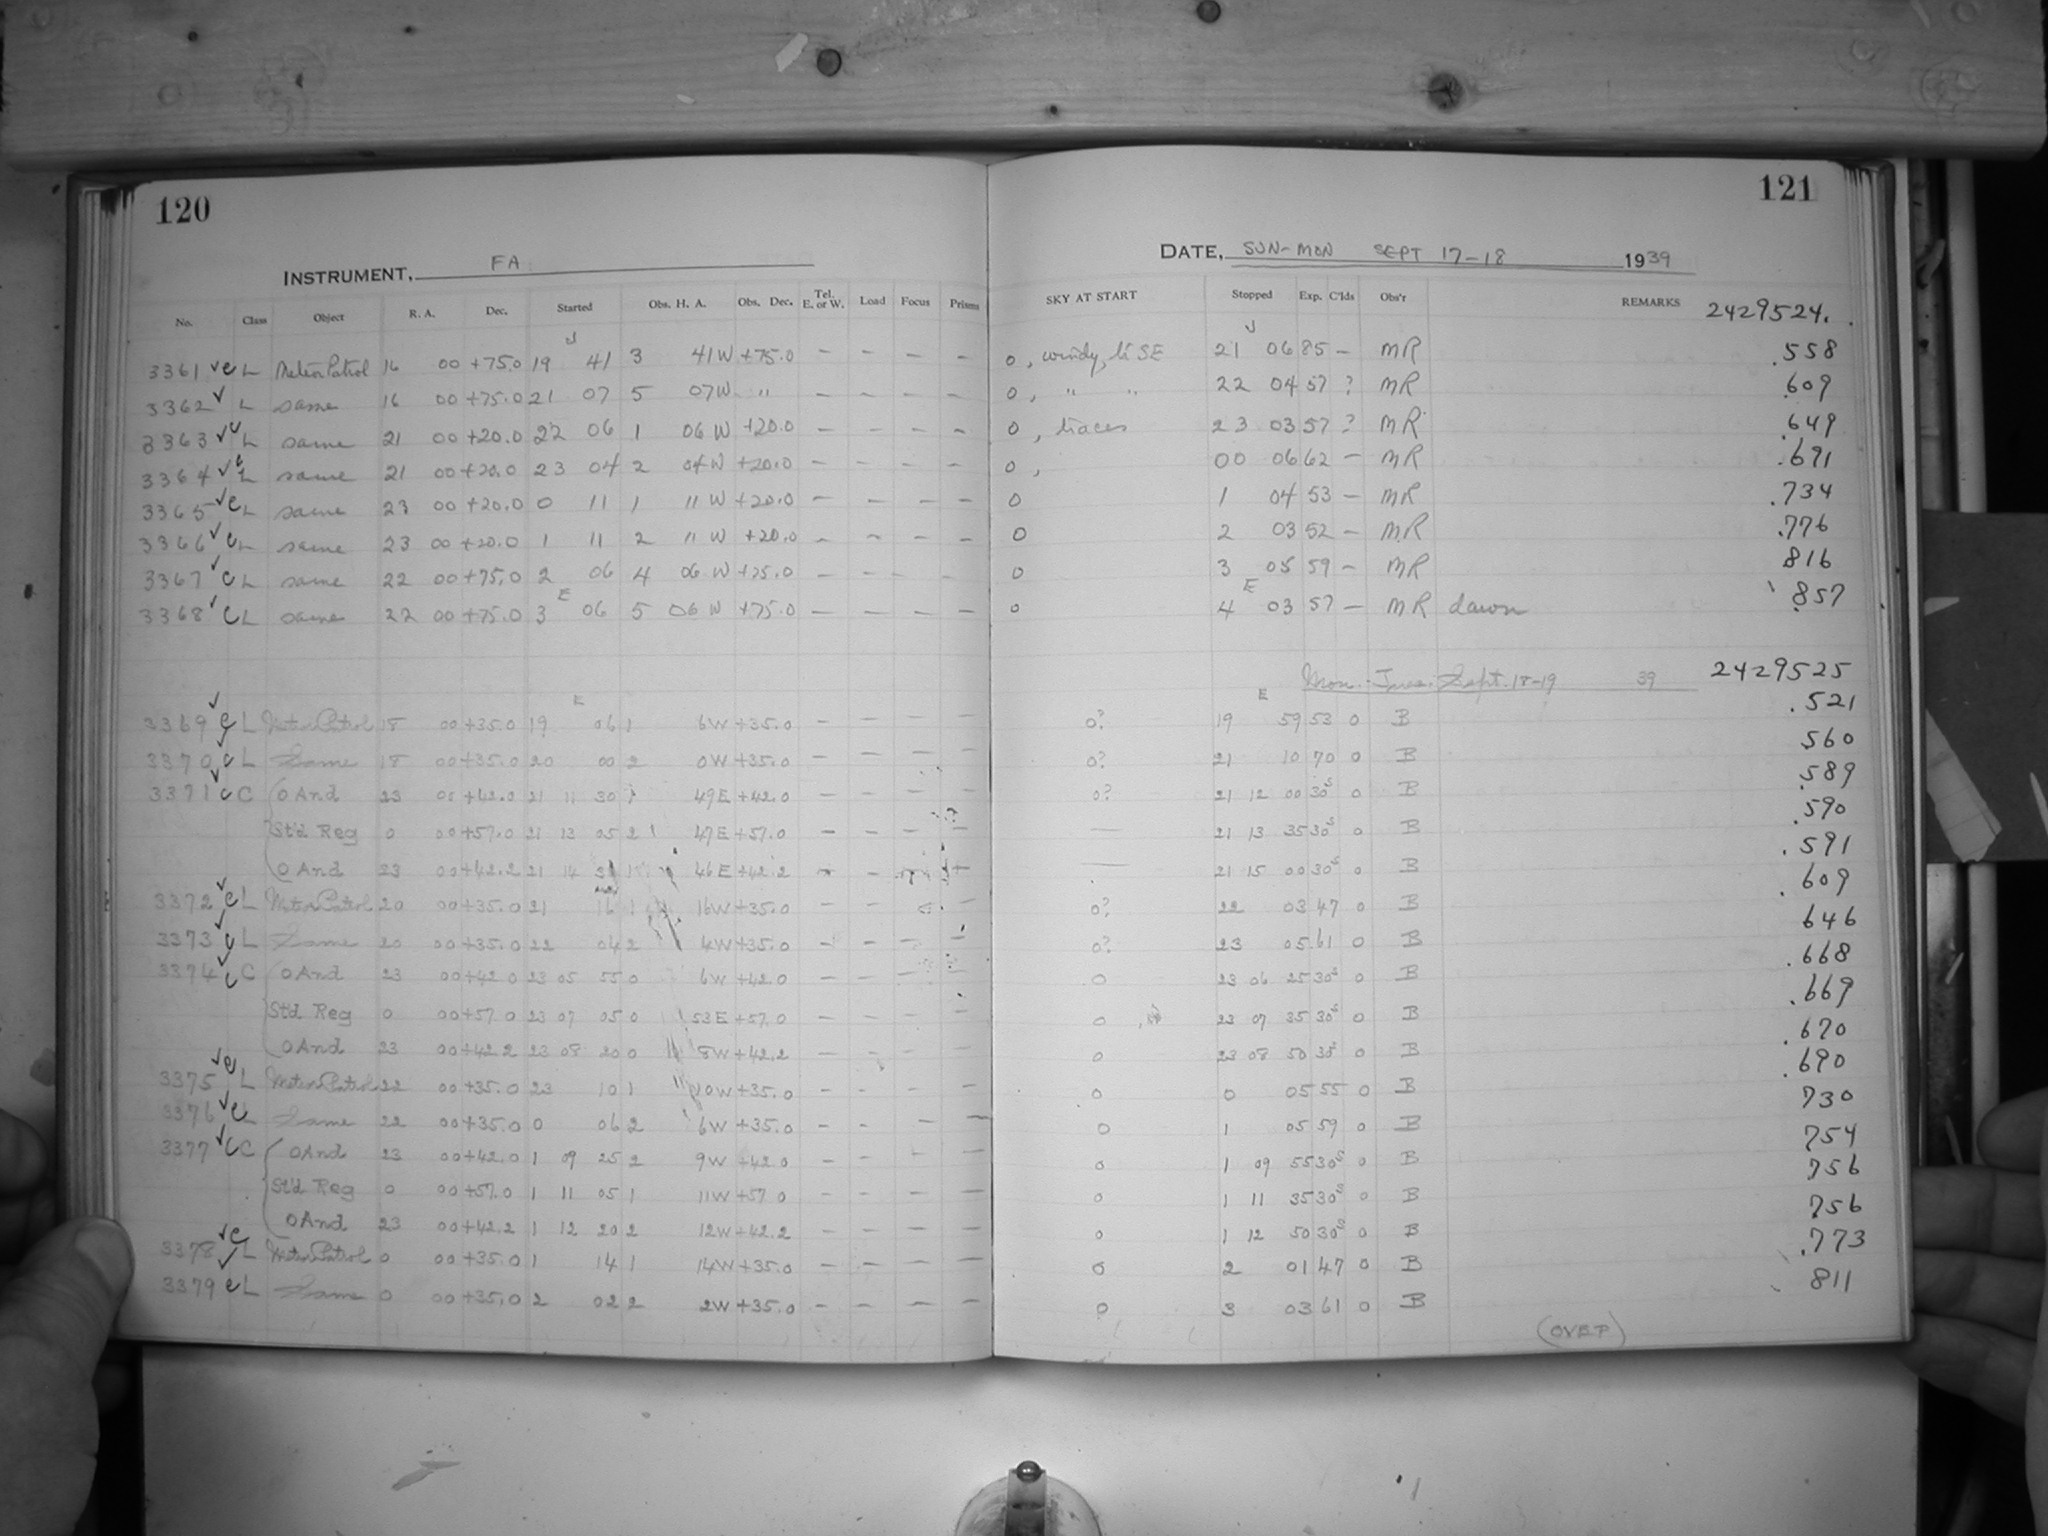 120
121
INSTRUMENT, FA
DATE, SUN-MON SEPT 17-18 1939
No. Class Object R. A. Dec. Started Obs. H. A. Obs. Dec. Tel. E. or W. Load Focus Prisms SKY AT START Stopped Exp. C'lds Obs'r REMARKS 2429524.
3361 L Meteor Patrol 16 00 +75.0 19 41 3 41W +75.0 – – – – 0, windy, SE 21 06 85 – MR .558
3362 L same 16 00 +75.0 21 07 5 07W " – – – – 0, " " 22 04 57 ? MR .609
3363 L same 21 00 +20.0 22 06 1 06W +20.0 – – – – 0, traces 23 03 57 ? MR .649
3364 L same 21 00 +20.0 23 04 2 04W +20.0 – – – – 0, 00 06 62 – MR .691
3365 L same 23 00 +20.0 0 11 1 11W +20.0 – – – – 0 1 04 53 – MR .734
3366 L same 23 00 +20.0 1 11 2 11W +20.0 – – – – 0 2 03 52 – MR .776
3367 L same 22 00 +75.0 2 06 4 06W +75.0 – – – – 0 3 05 59 – MR 816
3368 L same 22 00 +75.0 3 E 06 5 06W +75.0 – – – – 0 4 E 03 57 – MR dawn .857
Mon. - Tues. Sept. 18-19 39 2429525
3369 L Meteor Patrol 18 00 +35.0 19 E 06 1 6W +35.0 – – – – 0? 19 E 59 53 0 B .521
3370 L Same 18 00 +35.0 20 00 2 0W +35.0 – – – – 0? 21 10 70 0 B 560
3371 C O And 23 00 +42.0 21 11 30 1 49E +42.0 – – – – 0? 21 12 00 30s 0 B .589
Std Reg 0 00 +57.0 21 13 05 2 47E +57.0 – – – – — 21 13 35 30s 0 B .590
O And 23 00 +42.2 21 14 46E +42.2 – – – – — 21 15 00 30s 0 B .591
3372 L Meteor Patrol 20 00 +35.0 21 16 1 16W +35.0 – – – – 0? 22 03 47 0 B .609
3373 L Same 20 00 +35.0 22 04 2 4W +35.0 – – – – 0? 23 05 61 0 B 646
3374 C O And 23 00 +42.0 23 05 55 0 6W +42.0 – – – – 0 23 06 25 30s 0 B .668
Std Reg 0 00 +57.0 23 07 05 0 53E +57.0 – – – – 0 23 07 35 30s 0 B .669
O And 23 00 +42.2 23 08 20 0 8W +42.2 – – – – 0 23 08 50 30s 0 B .670
3375 L Meteor Patrol 22 00 +35.0 23 10 1 10W +35.0 – – – – 0 0 05 55 0 B .690
3376 L Same 22 00 +35.0 0 06 2 6W +35.0 – – – – 0 1 05 59 0 B 730
3377 C O And 23 00 +42.0 1 09 25 2 9W +42.0 – – – – 0 1 09 55 30s 0 B 754
Std Reg 0 00 +57.0 1 11 05 1 11W +57.0 – – – – 0 1 11 35 30s 0 B 756
O And 23 00 +42.2 1 12 20 2 12W +42.2 – – – – 0 1 12 50 30s 0 B 756
3378 L Meteor Patrol 0 00 +35.0 1 14 1 14W +35.0 – – – – 0 2 01 47 0 B .773
3379 L Same 0 00 +35.0 2 02 2 2W +35.0 – – – – 0 3 03 61 0 B 811
(OVER)